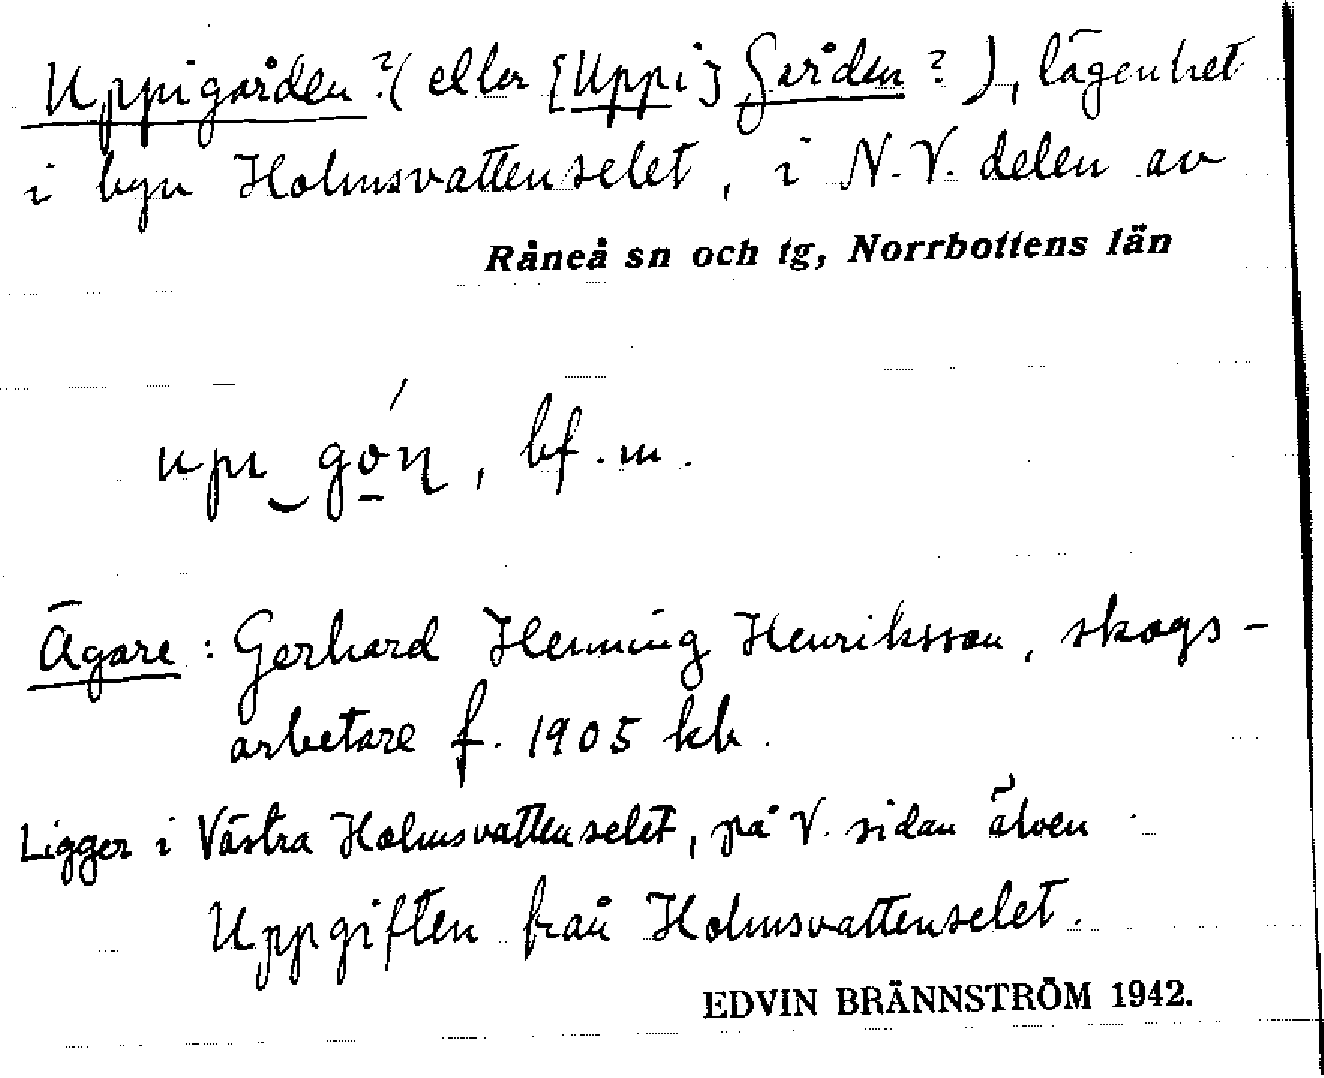 Uppigården? (eller [Uppi] Gården?), lägenhet
i byn Holmsvattenselet, i N.V. delen av
Råneå sn och tg, Norrbottens län
bf. m.
Ägare: Gerhard Henning Henriksson, skogs-
arbetare f. 1905 kb.
Ligger i Västra Holmsvattenselet, på V. sidan älven.
Uppgiften från Holmsvattenselet.
EDVIN BRÄNNSTRÖM 1942.